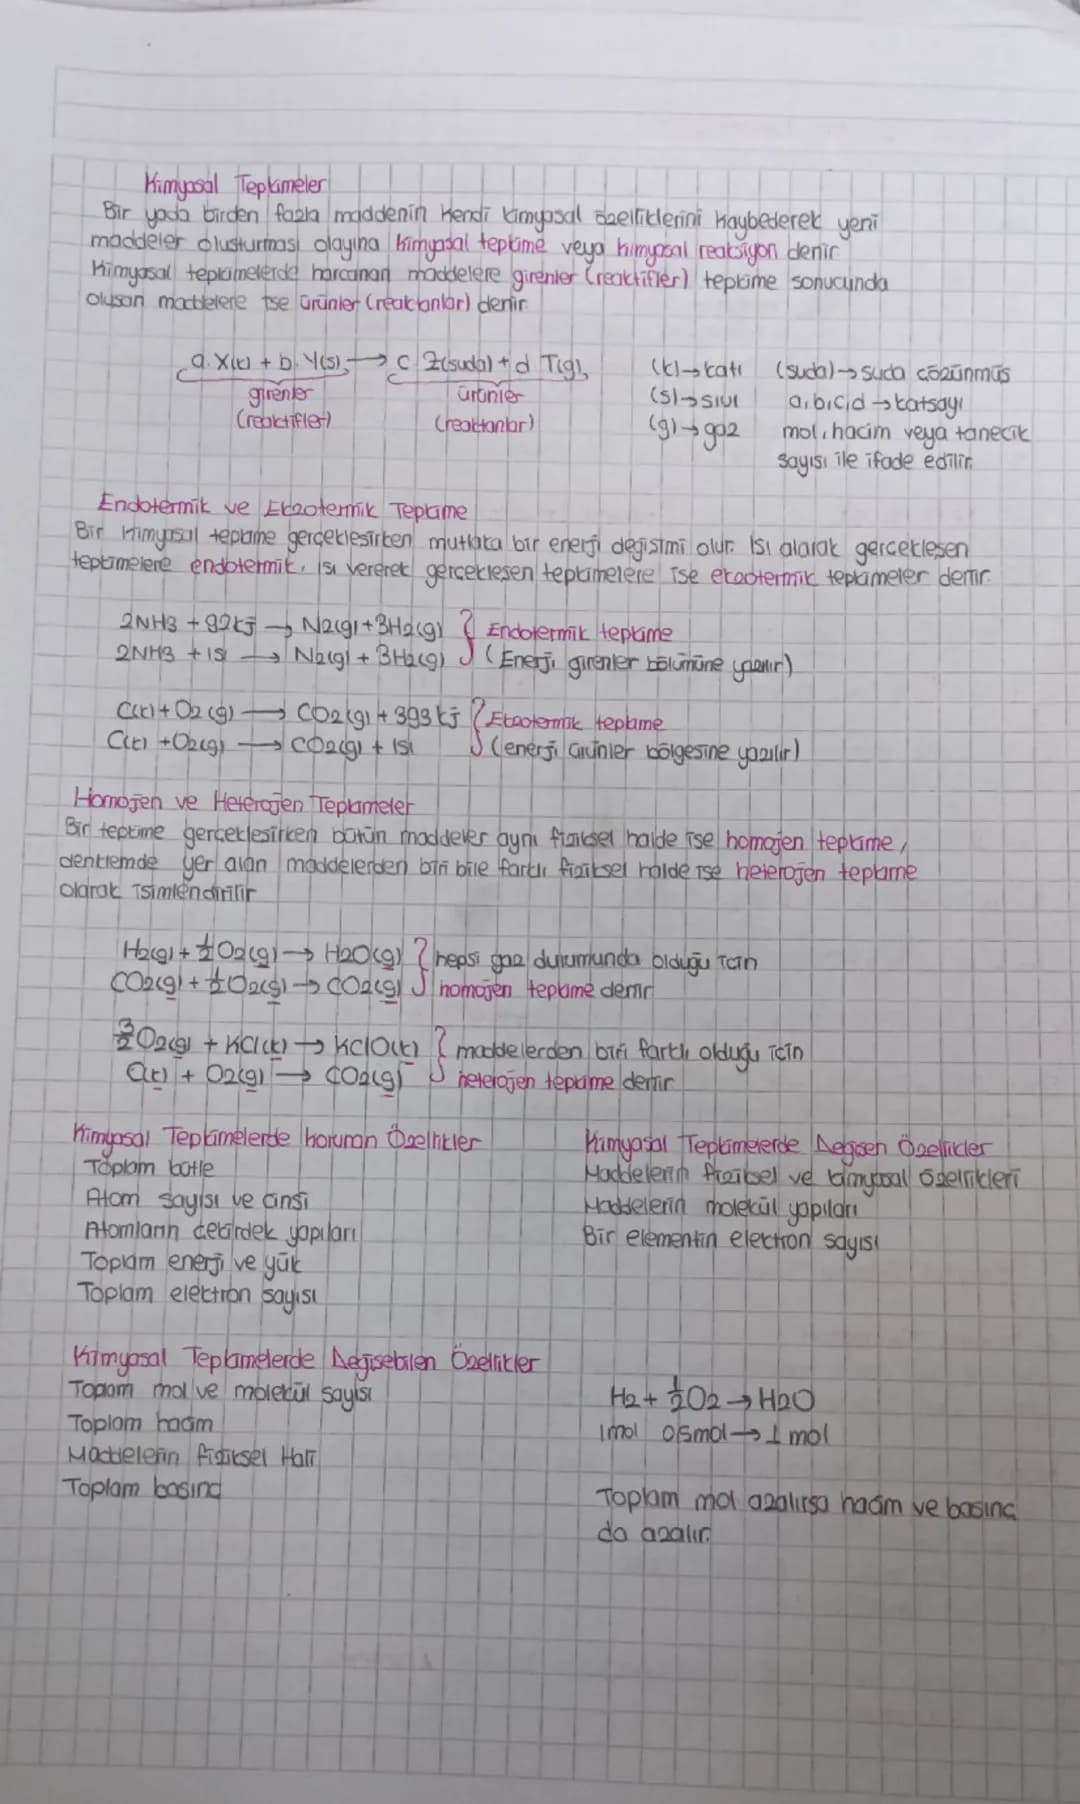 Kimyasal Tepkimeler
Bir yada birden fazla maddenin kendi kimyasal özelliklerini kaybederek yeni
maddeler oluşturması olayına kimyasal tepkime veya kimyasal reaksiyon denir
Kimyasal tepkimelerde harcanan maddelere girenler (reaktifler) tepkime sonucunda
oluşan maddelere ise ürünler (reaktanlar) denir.
a. X(k) + b. Y(s) → c Z(suda) + d T(g)
(k) → katı (suda) → suda çözünmüş
girenler ürünler
(s) → sıvı a,b,c,d → katsayı
(reaktifler) (reaktanlar)
(g) → gaz mol, hacim veya tanecik
sayısı ile ifade edilir.
Endotermik ve Ekzotermik Tepkime
Bir kimyasal tepkime gerçekleşirken mutlaka bir enerji değişimi olur. Isı alarak gerçekleşen
tepkimelere endotermik, ısı vererek gerçekleşen tepkimelere ise ekzotermik tepkimeler denir.
2NH3 + 92kj → N2(g) + 3H2(g) } Endotermik tepkime
2NH3 + ısı → N2(g) + 3H2(g) (Enerji girenler bölümüne yazılır)
C(k) + O2(g) → CO2(g) + 393 kj } Ekzotermik tepkime
C(k) + O2(g) → CO2(g) + ısı (enerji ürünler bölgesine yazılır)
Homojen ve Heterojen Tepkimeler
Bir tepkime gerçekleşirken bütün maddeler aynı fiziksel halde ise homojen tepkime,
denklemde yer alan maddelerden biri bile farklı fiziksel halde ise heterojen tepkime
olarak isimlendirilir
H2(g) + ½O2(g) → H2O(g) } hepsi gaz durumunda olduğu için
CO2(g) + ½O2(g) → CO2(g) homojen tepkime denir
3/2 O2(g) + KCl(k) → KClO(k) } maddelerden biri farklı olduğu için
C(k) + O2(g) → CO2(g) heterojen tepkime denir
Kimyasal Tepkimelerde korunan Özellikler
Toplam kütle
Atom sayısı ve cinsi
Atomların çekirdek yapıları
Toplam enerji ve yük
Toplam elektron sayısı
Kimyasal Tepkimelerde Değişen Özellikler
Maddelerin fiziksel ve kimyasal özellikleri
Maddelerin molekül yapıları
Bir elementin electron sayısı
Kimyasal Tepkimelerde Değişebilen Özellikler
Toplam mol ve molekül sayısı
Toplam hacim
Maddelerin fiziksel Hali
Toplam basınç
H2 + ½O2 → H2O
1mol 0,5mol → 1 mol
Toplam mol azalırsa hacim ve basınç
da azalır.